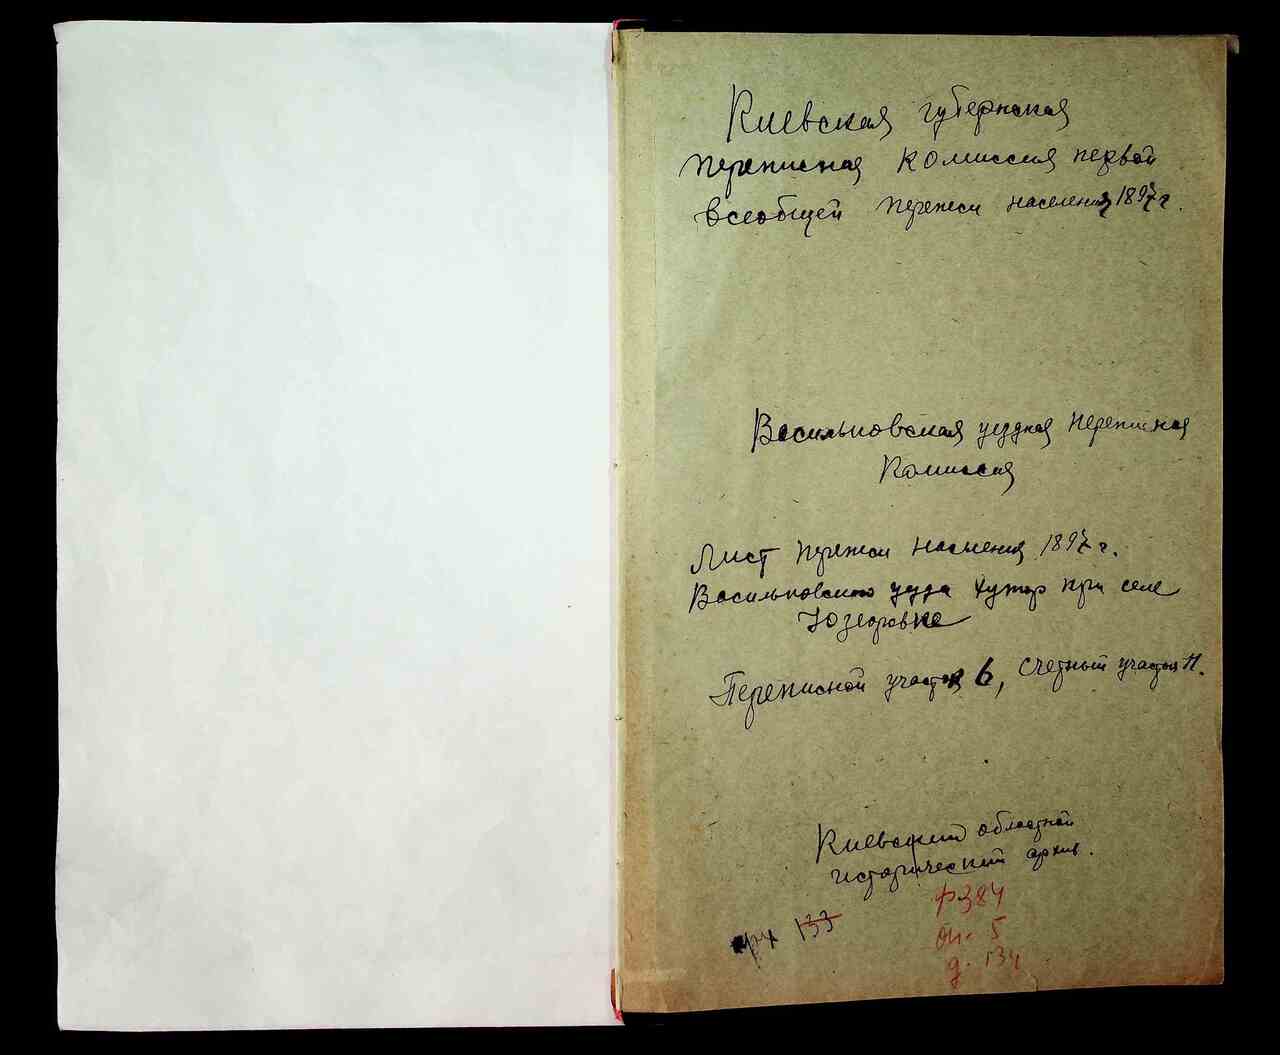 Киевская губернская
переписная комиссия первой
всеобщей переписи населения 1897 г.
Васильковская уездная переписная
комиссия
Лист переписи населения 1897 г.
Васильковского уезда хутор при селе
Юзефовке
Переписной участок 6, счетный участок
Киевский областной
исторический архив.
ф 384
133
оп. 5
д. 134